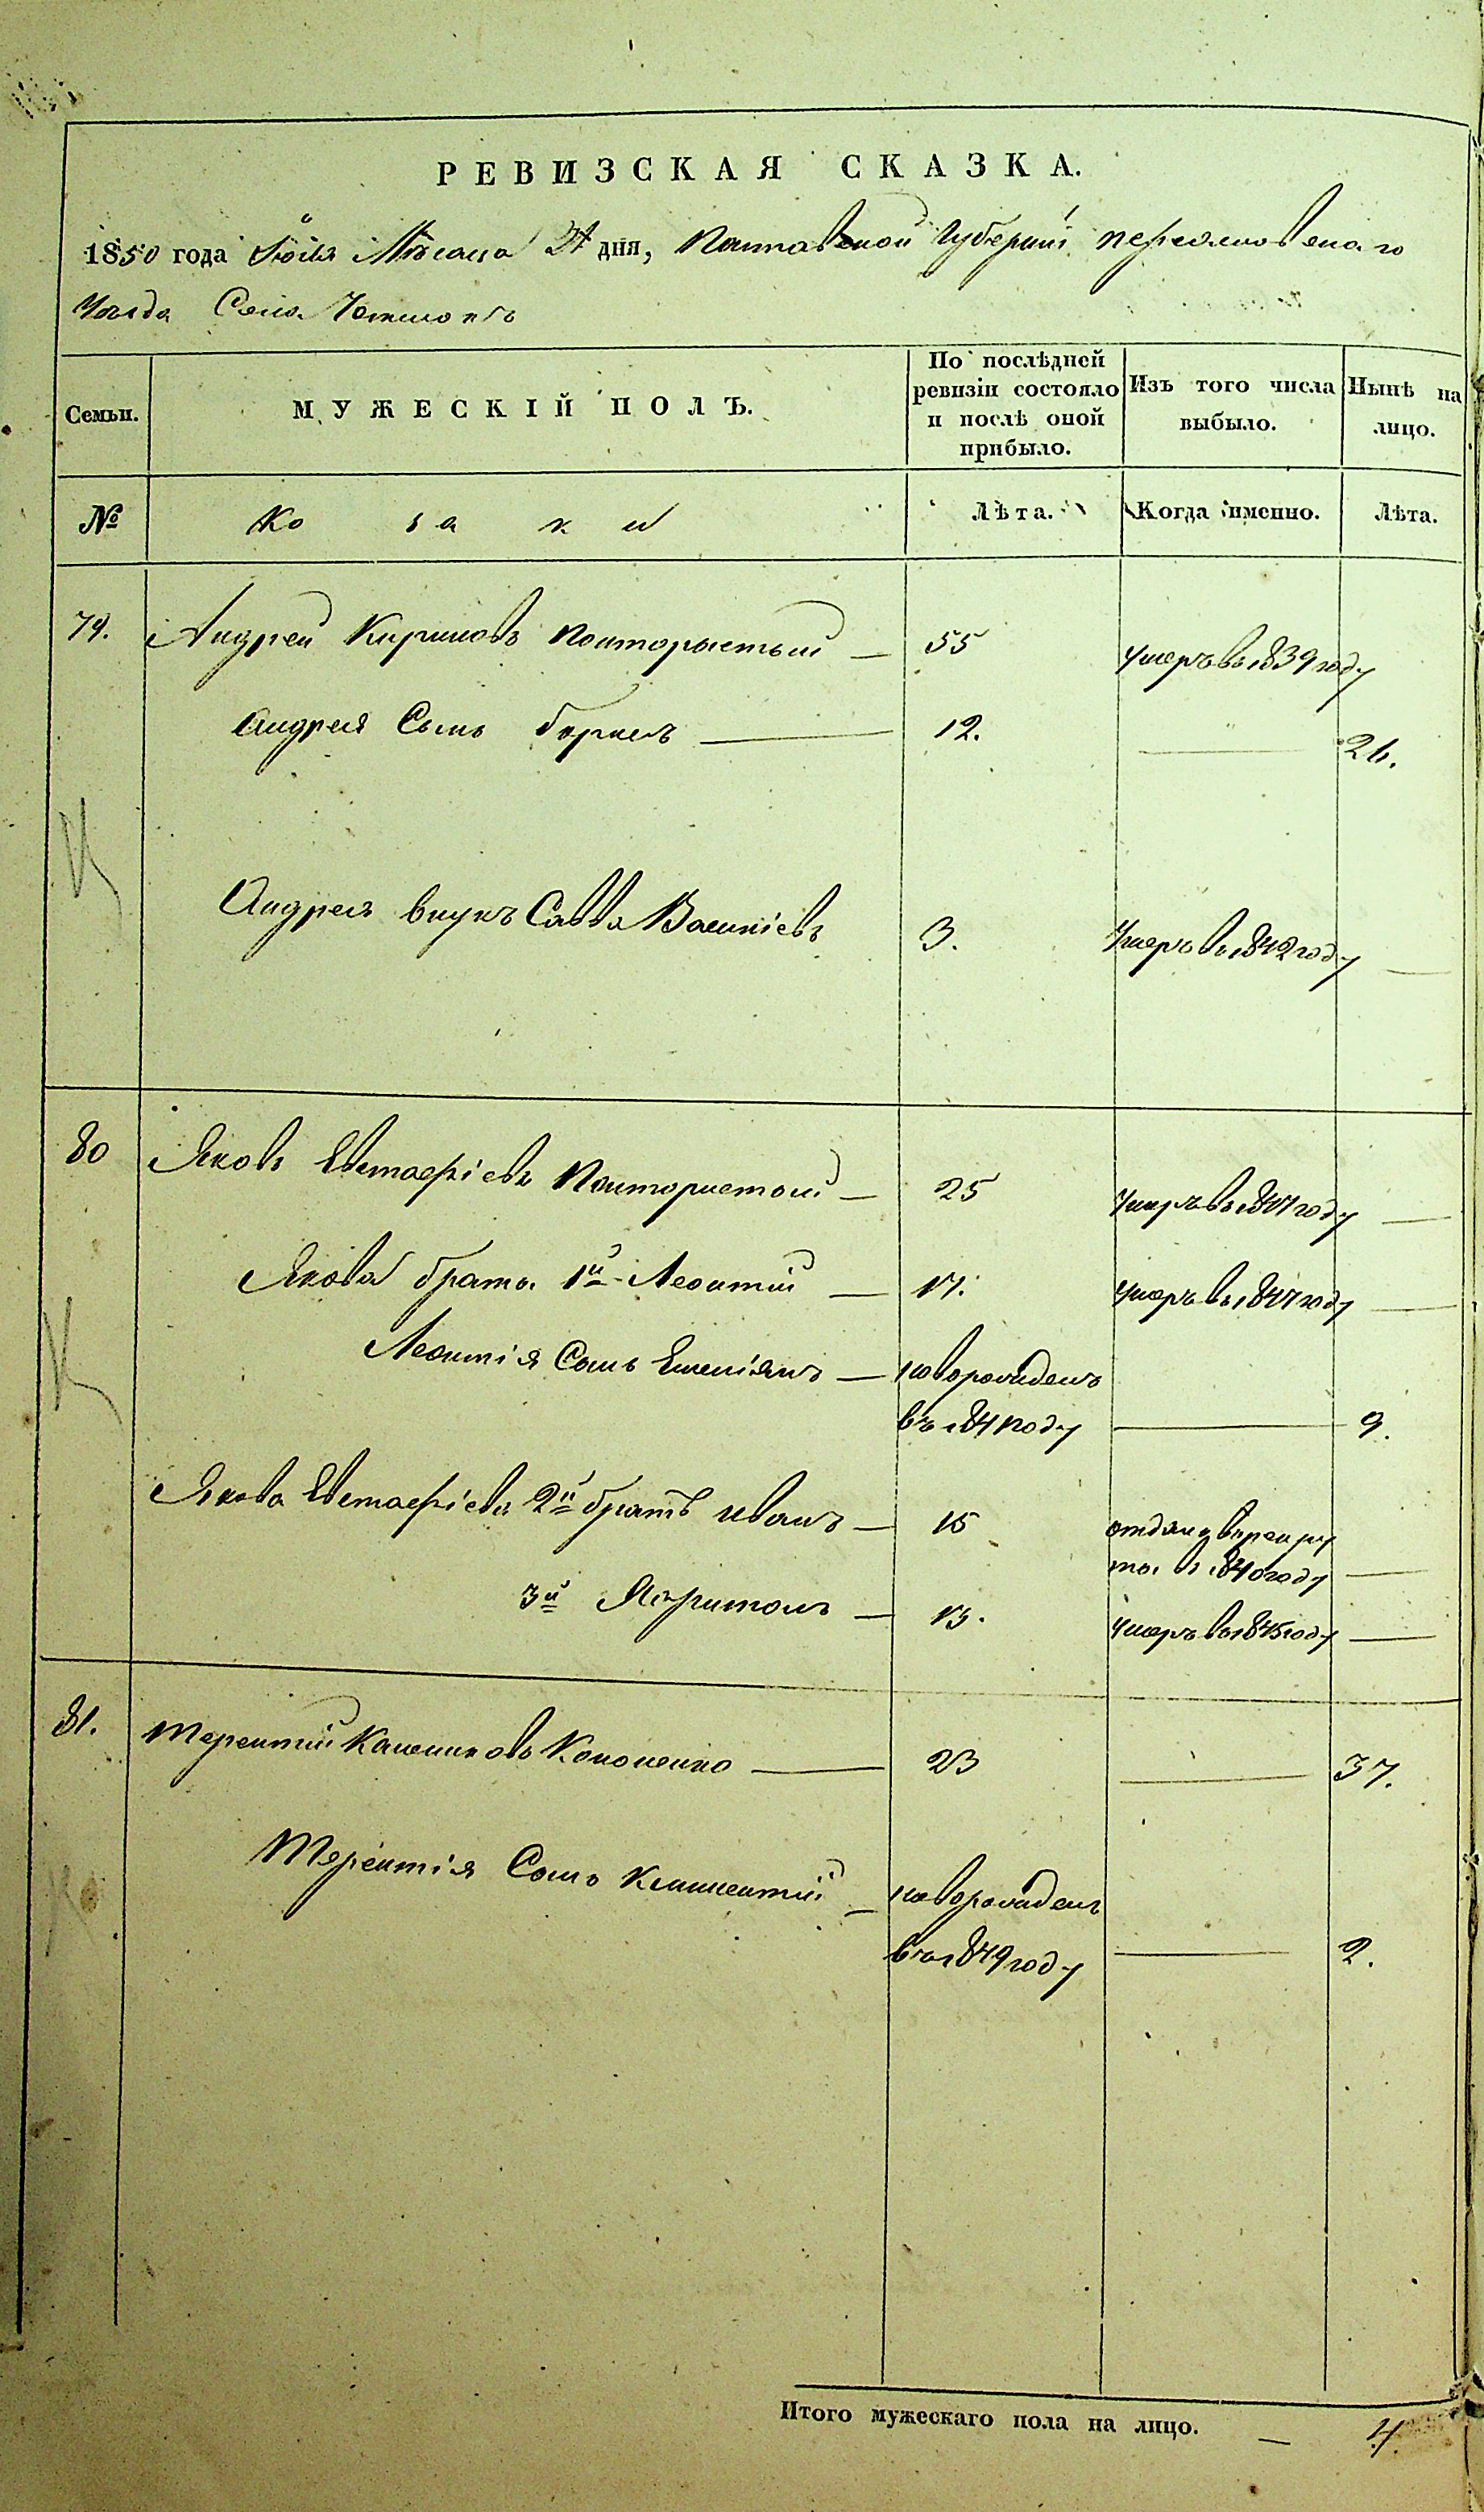 РЕВИЗСКАЯ СКАЗКА.
1850 года Июля Мѣсяца дня, Полтавской Губерніи Переясловскаго
Уѣзда Села
Семьи.
МУЖЕСКІЙ ПОЛЪ.
По послѣдней ревизіи состояло и послѣ оной прибыло.
Изъ того числа выбыло.
Нынѣ на лицо.
№
Козаки
Лѣта.
Когда именно.
Лѣта.
79. Андрей Кириловъ Полторастый — 55 умеръ въ 1839 году
Андрея Сынъ — 12. — 26.
Андрея внукъ Савва Василіевъ 3. Умеръ въ 1842 году —
80 Яковъ Евстафіевъ — 25 Умеръ въ 1847 году —
Якова братъ 1й Леонтій — 17. умеръ въ 1847 году —
Леонтія Сынъ Емеліянъ — новорожденъ
въ 1841 году — 9.
Якова Евстафіева 2й братъ Иванъ — 15 отданъ в рекру
ты в 1840 году —
3й Харитонъ — 13. Умеръ въ 1845 году —
81. Терентій Калениковъ Кононенко — 23 — 37.
Терентія Сынъ Климентій — новорожденъ
въ 1849 году — 2.
Итого мужескаго пола на лицо. — 4.